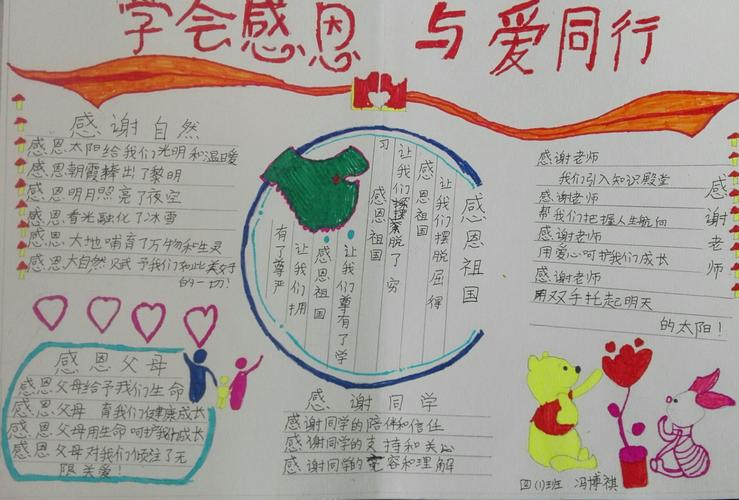 学会感恩 与爱同行
感谢自然
感恩太阳给我们光明和温暖
感恩朝霞捧出了黎明
感恩明月照亮了夜空
感恩春光融化了冰雪
感恩大地哺育了万物和生灵
感恩大自然赋予我们如此美好
的一切!
感恩祖国
让我们摆脱屈辱
感恩祖国
让我们摆脱了穷
感恩祖国
让我们尊有了学
习
感恩祖国
让我们拥
有了尊严
感谢老师
感谢老师
我们引入知识殿堂
感谢老师
帮我们把握人生航向
感谢老师
用爱心呵护我们成长
感谢老师
用双手托起明天
的太阳!
感恩父母
感恩父母给予我们生命
感恩父母 育我们健康成长
感恩父母用生命呵护我们成长
感恩父母对我们倾注了无
限关爱!
感谢同学
感谢同学的陪伴和信任
感谢同学的支持和关心
感谢同学的宽容和理解
四(1)班 冯博祺